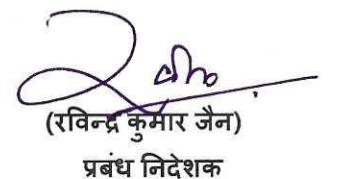 (रविन्द्र कुमार जैन)
प्रबंध निदेशक